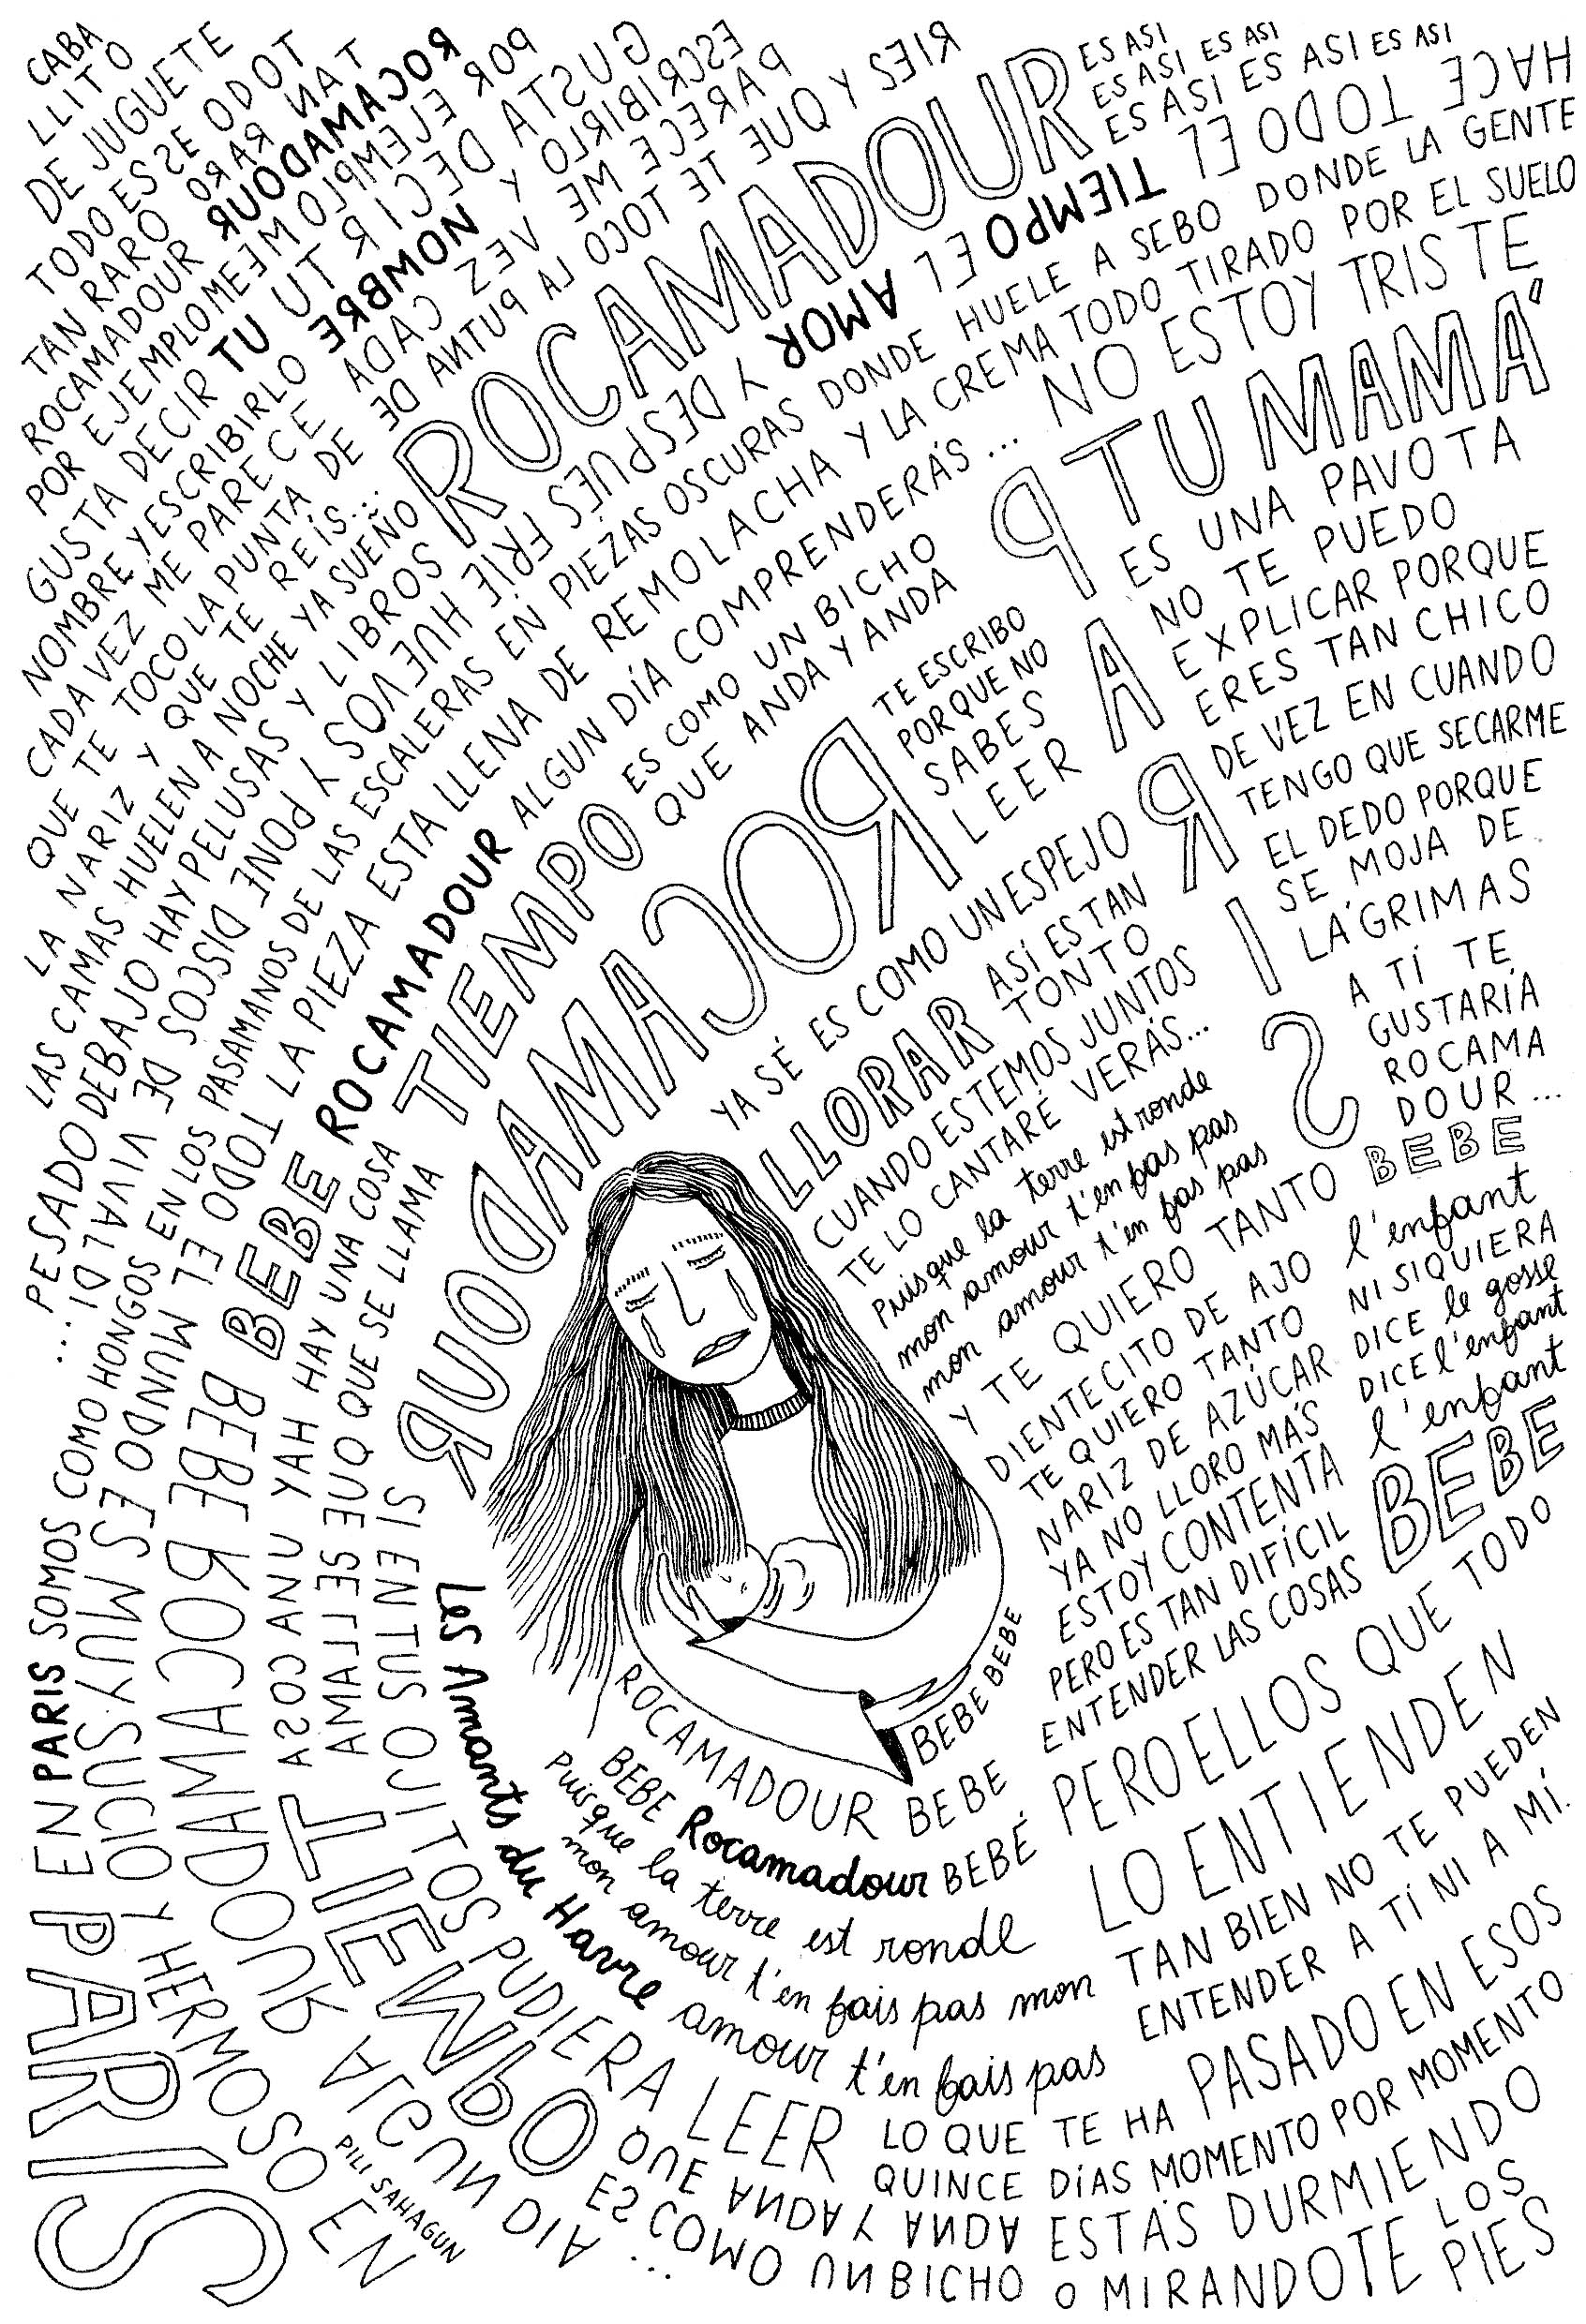 CABA
LLITO
DE JUGUETE
TODO ES ESE ODOT
TAN RARO
ROCAMADOUR
POR EJEMPLO ME
GUSTA DECIR TU
NOMBRE Y ESCRIBIRLO
CADA VEZ ME PARECE
QUE TE TOCO LA PUNTA DE
LA NARIZ Y QUE TE REÍS...
TAN RARO
ROCAMADOUR
POR EJEMPLO ME
GUSTA DECIR TU
NOMBRE Y
ESCRIBIRLO
CADA VEZ ME PARECE
QUE TE TOCO LA PUNTA DE
RIES Y
ROCAMADOUR
ES ASI
ES ASI ES ASI
ES ASI ES ASI ES ASI
HACE TODO EL
TIEMPO EL AMOR
Y DESPUES FRIE HUEVOS Y PONE DISCOS DE VIVALDI...
LAS CAMAS HUELEN A NOCHE YA SUEÑO
PESADO DEBAJO HAY PELUSAS Y LIBROS
EN PARIS SOMOS COMO HONGOS EN LOS PASAMANOS DE LAS ESCALERAS EN PIEZAS OSCURAS DONDE HUELE A SEBO DONDE LA GENTE
TODO EL MUNDO
LA PIEZA ESTA LLENA DE REMOLACHA Y LA CREMA TODO TIRADO POR EL SUELO
BEBE ROCAMADOUR ALGUN DÍA COMPRENDERÁS...
NO ESTOY TRISTE
TU MAMÁ
ES UNA PAVOTA
NO TE PUEDO
EXPLICAR PORQUE
ERES TAN CHICO
DE VEZ EN CUANDO
TENGO QUE SECARME
EL DEDO PORQUE
SE MOJA DE
LÁGRIMAS
PARIS
YAH HAY UNA COSA
QUE SE LLAMA
TIEMPO
ES COMO UN BICHO
QUE ANDA Y ANDA
TE ESCRIBO
PORQUE NO
SABES
LEER
ROCAMADOUR
YA SÉ ES COMO UN ESPEJO
LLORAR
ASÍ ES TAN
TONTO
CUANDO ESTEMOS JUNTOS
TE LO CANTARÉ VERÁS...
Puisque la terre est ronde
mon amour t'en fas pas
mon amour t'en fas pas
A TÍ TE
GUSTARÍA
ROCAMA
DOUR...
Y TE QUIERO TANTO BEBE
DIENTECITO DE AJO l'enfant
TE QUIERO TANTO
NI SIQUIERA
NARIZ DE AZÚCAR
DICE le gosse
DICE l'enfant
YA NO LLORO MÁS
l'enfant
ESTOY CONTENTA
PERO ES TAN DIFÍCIL
ENTENDER LAS COSAS
BEBE
PERO ELLOS QUE TODO
LO ENTIENDEN
TAN BIEN NO TE PUEDEN
ENTENDER A TÍ NI A MÍ.
ROCAMADOUR BEBE BEBE BEBE
BEBE Rocamadour BEBÉ
BEBE
Puisque la terre est ronde
mon amour t'en fais pas mon
Les Amants du Havre amour t'en fais pas
SI EN TUS OJITOS PUDIERA LEER
LO QUE TE HA PASADO EN ESOS
QUINCE DÍAS MOMENTO POR MOMENTO
ESTÁS DURMIENDO
O MIRANDOTE LOS
PIES
EN PARIS
ES MUY SUCIO Y HERMOSO EN
PARIS
BEBE ROCAMADOUR ALGUN DIA...
YAH UNA COSA
QUE SE LLAMA
TIEMPO
QUE ANDA Y ANDA
ES COMO UN BICHO
PILI SAHAGUN